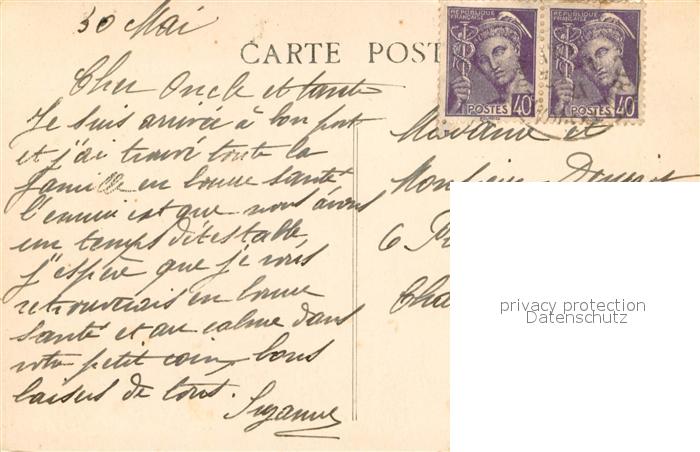 30 Mai
CARTE POST
RÉPUBLIQUE FRANÇAISE
POSTES 40
RÉPUBLIQUE FRANÇAISE
POSTES 40
Cher Oncle et tante
Je suis arrivée à bon port
et j'ai trouvé toute la
famille en bonne santé
l'ennui est que nous avons
un temps détestable
j'espère que je vous
retrouverais en bonne
santé et au calme dans
votre petit coin, bons
baisers de tous.
Suzanne
Madame et
Monsieur
6
Cha
privacy protection
Datenschutz